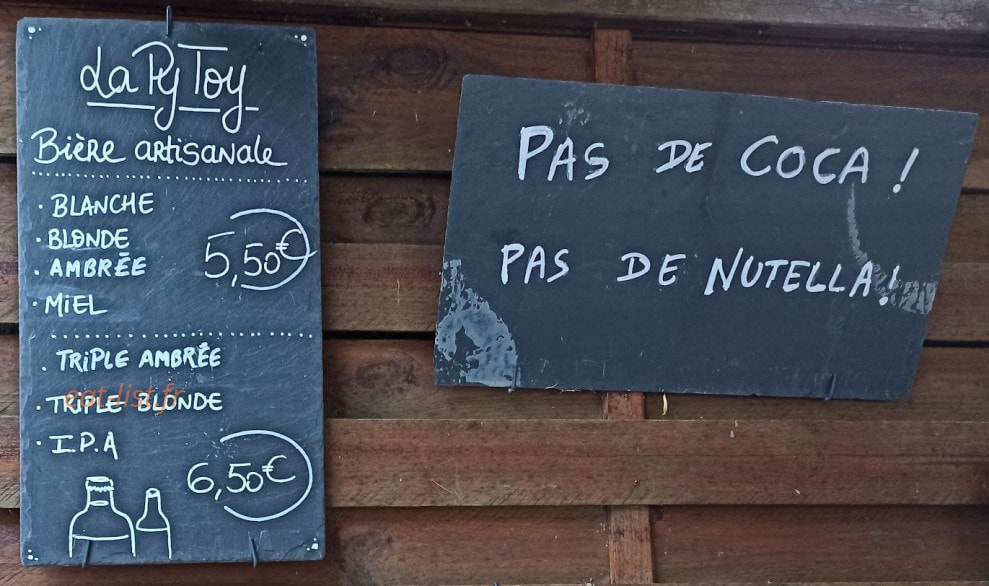 La Py Toy
Bière artisanale
· BLANCHE
· BLONDE
· AMBRÉE
· MiEL
5,50€
· TRiPLE AMBRÉE
· TRIPLE BLONDE
eat-list.fr
· I.P.A
6,50€
PAS DE COCA !
PAS DE NUTELLA !